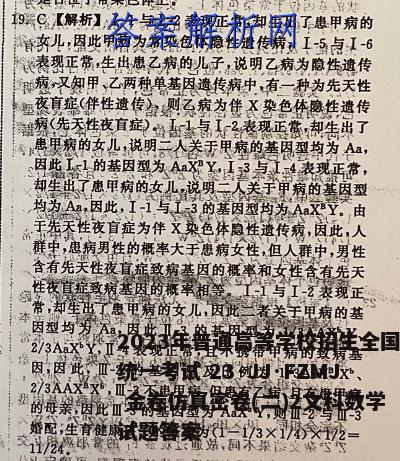 答案解析网
19. C【解析】Ⅰ-1与Ⅰ-2表现正常,却生出了患甲病的
女儿,因此甲病为常染色体隐性遗传病,Ⅰ-5与Ⅰ-6
表现正常,生出患乙病的儿子,说明乙病为隐性遗传
病,又知甲、乙两种单基因遗传病中,有一种为先天性
夜盲症(伴性遗传),则乙病为伴X染色体隐性遗传
病(先天性夜盲症)。Ⅰ-1与Ⅰ-2表现正常,却生出了
患甲病的女儿,说明二人关于甲病的基因型均为Aa,
因此Ⅰ-1的基因型为AaXᴮY,Ⅰ-3与Ⅰ-4表现正常,
却生出了患甲病的女儿,说明二人关于甲病的基因型
均为Aa,因此,Ⅰ-1与Ⅰ-3的基因型均为AaXᴮY。由
于先天性夜盲症为伴X染色体隐性遗传病,因此,人
群中,患病男性的概率大于患病女性,但人群中,男性
含有先天性夜盲症致病基因的概率和女性含有先天
性夜盲症致病基因的概率相等。Ⅰ-1与Ⅰ-2表现正
常,却生出了患甲病的女儿,说明二人关于甲病的基
因型均为Aa,因此Ⅱ-2的基因型为
2/3AaXᴮY,Ⅱ-
因,因此,
2/3AAXᴮXᵇ
的母亲,因此Ⅲ-3的基因型为AaXᴮY,则Ⅲ-2与Ⅲ-3
婚配,生育健康 为(1-1/3×1/4)×1/2=
11/24。
2023年普通高等学校招生全国
统一考试 23·JJ·FZMJ
金卷仿真密卷(二)2文科数学
试题答案